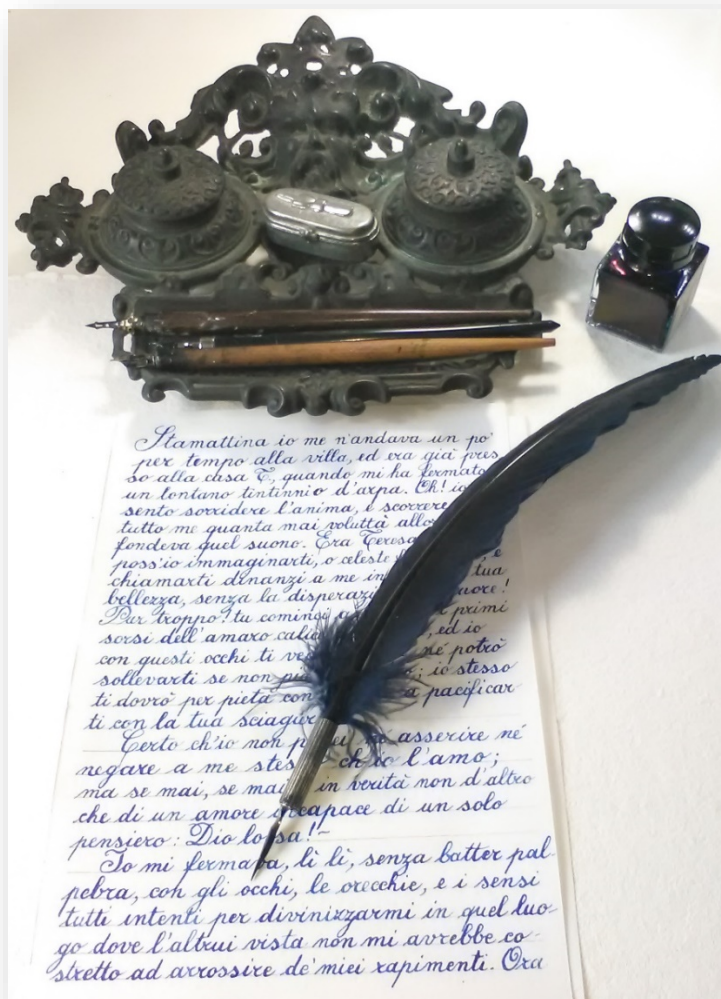 Stamattina io me n'andava un po'
per tempo alla villa, ed era già pres
so alla casa T., quando mi ha fermato
un lontano tintinnio d'arpa. Oh! io
sento sorridere l'anima, e scorrere
tutto me quanta mai voluttà allo
fondeva quel suono. Era Teresa
poss'io immaginarti, o celeste
chiamarti dinanzi a me in tua
bellezza, senza la disperazi uore!
Pur troppo! tu cominci primi
sorsi dell'amaro calic , ed io
con questi occhi ti ve né potrò
sollevarti se non ; io stesso
ti dovrò per pietà con a pacificar
ti con la tua sciagur
Certo ch'io non p ei né asserire né
negare a me stes ch'io l'amo;
ma se mai, se mai in verità non d'altro
che di un amore incapace di un solo
pensiero: Dio lo sa! –
Io mi fermava, lì lì, senza batter pal-
pebra, con gli occhi, le orecchie, e i sensi
tutti intenti per divinizzarmi in quel luo-
go dove l'altrui vista non mi avrebbe co-
stretto ad arrossire de' miei rapimenti. Ora